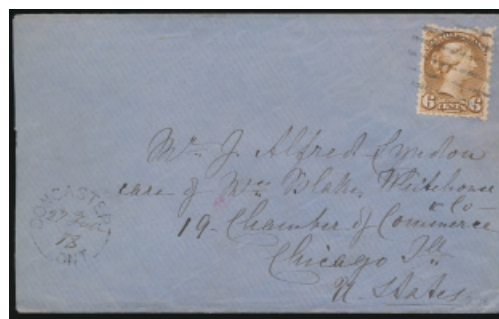 6 CENTS 6
Mr. J. Alfred
care of Wm. Blake, Whitehouse
& Co
19 Chamber of Commerce
Chicago Ill
U. States
DONCASTER
27
73
ONT